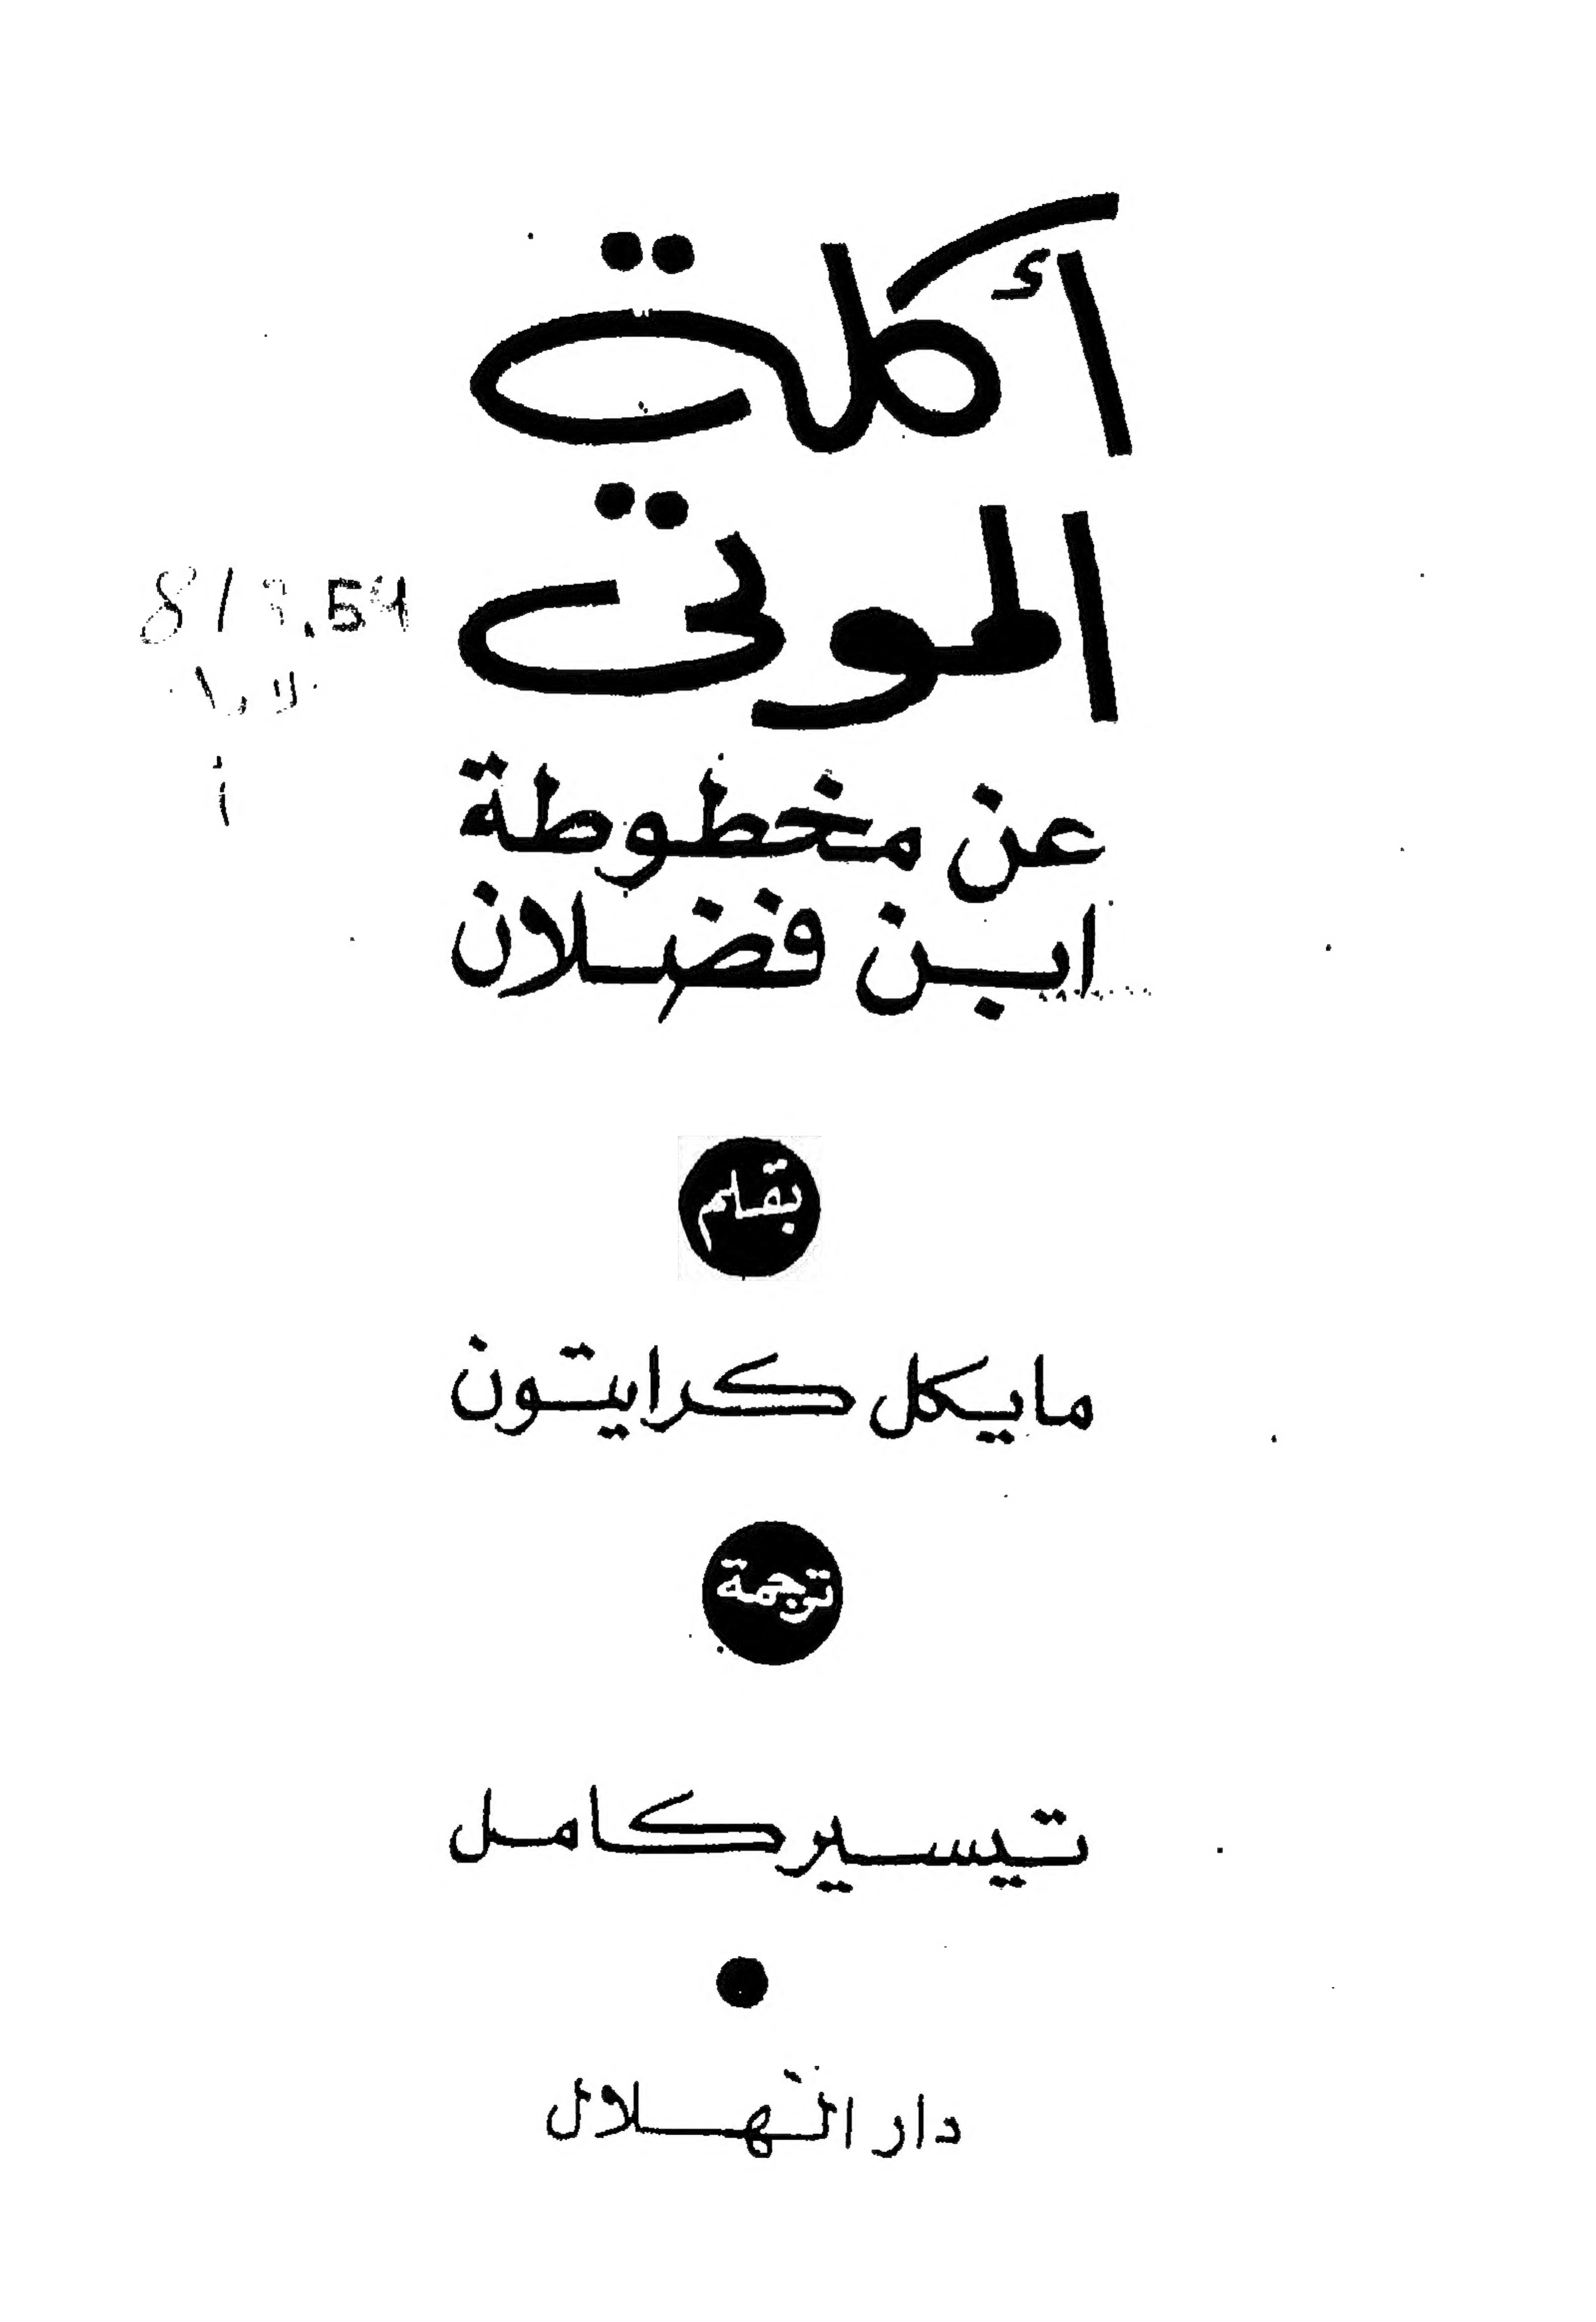 أكلة
الموتى
عن مخطوطة
ابن فضلان
بقلم
مايكل كرايتون
ترجمة
تيسير كامل
دار الهلال